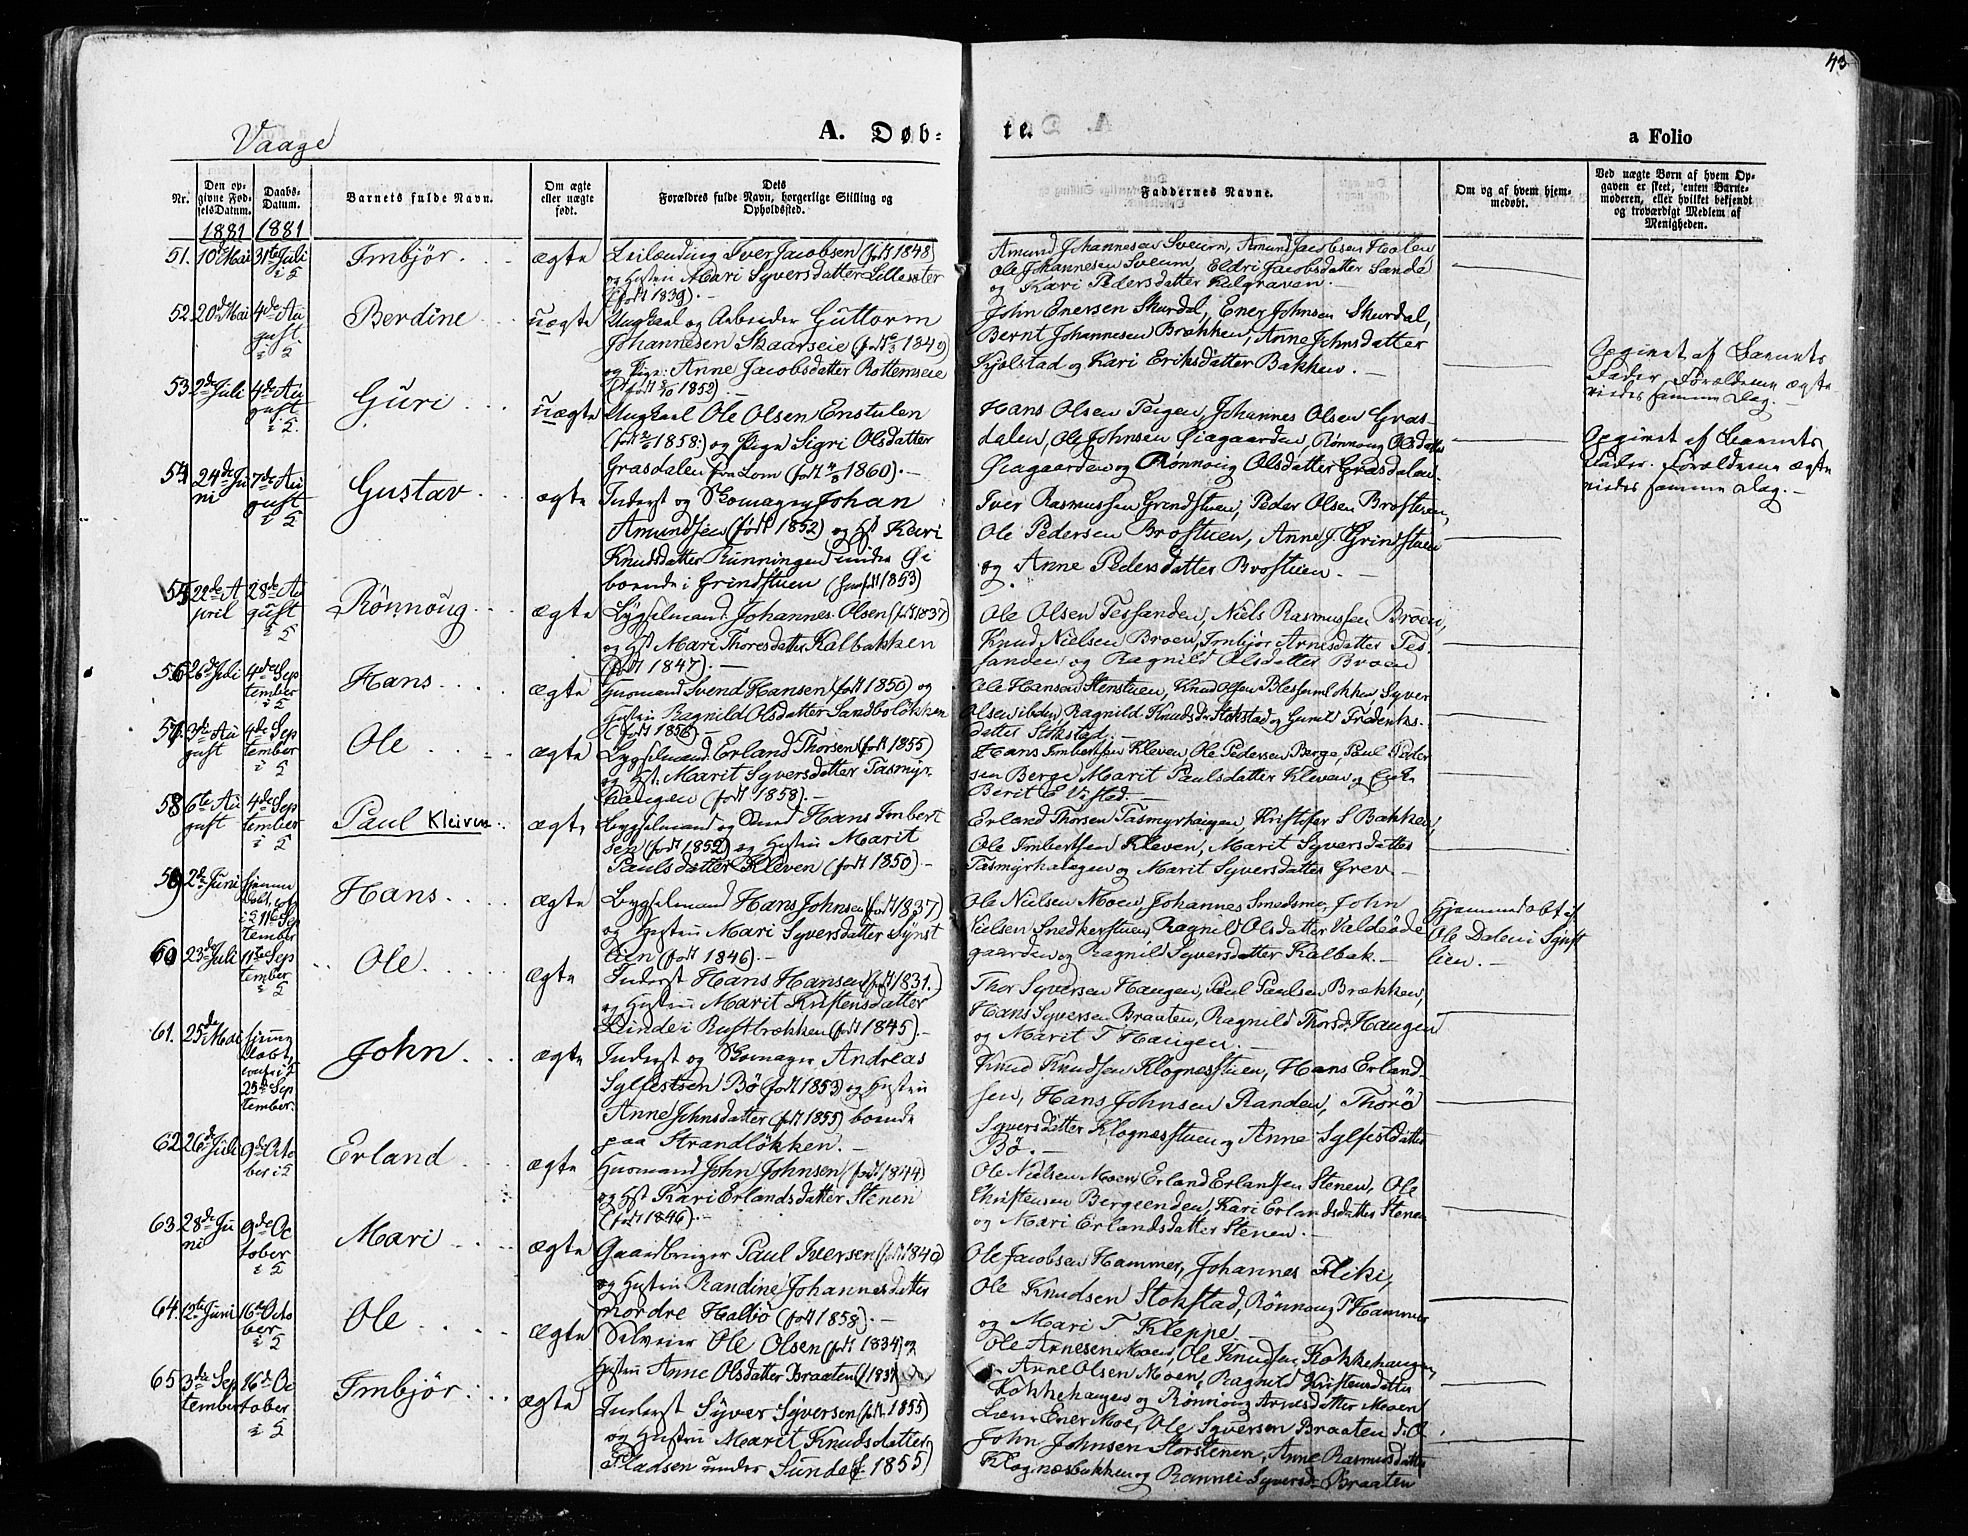 43
Vaage
A. Døb-
te.
a Folio
Nr.
Den op-
givne Fød-
selsDatum.
Daabs-
Datum.
Barnets fulde Navn.
Om ægte
eller uægte
født.
Dets
Forældres fulde Navn, borgerlige Stilling og
Opholdssted.
Faddernes Navne.
Om og af hvem hjem-
medøbt.
Ved uægte Børn af hvem Op-
gaven er skeet, enten Barne-
moderen, eller hvilket bekjendt
og troværdigt Medlem af
Menigheden.
1881
1881
51. 10de Mai
31te Juli
i S
Imbjør
ægte
Leilending Iver Jacobsen (født 1848)
og Hustru Mari Syversdatter Lillesæter
(født 1839).-
Amund Johannesen Sveum, Amund Jacobsen Holen
Ole Johannesen Sveum, Eldri Jacobsdatter Sande
og Kari Pedersdatter
52. 20de Mai
4de Au
gust
i S
Berdine
uægte
Ungkarl og Arbeider Guttorm
Johannesen Skaarseie (født 1849)
og Pige: Anne Jacobsdatter Rottemseie
(født 1852).
John Enersen Skurdal, Ener Johnsen Skurdal,
Bernt Johannesen Brækken, Anne Johnsdatter
Kjolstad og Kari Eriksdatter Bakken.-
Opgivet af Barnets
Fader. Forældrene ægte
viedes samme Dag.-
53. 2de Juli
4de Au
gust
i S.
Guri
uægte
Ungkarl Ole Olsen Enstulen
(født 1858) og Pige Sigri Olsdatter
Grasdalen fra Lom (født 1860).-
Hans Olsen Teigen, Johannes Olsen Gras-
dalen, Ole Johnsen Øiagaarden, Rønnoug Olsdatter
Øiagaarden og Rønnoug Olsdatter Grasdalen.
Opgivet af Barnets
Fader. Forældrene ægte
viedes samme Dag.-
54. 24de Ju
ni
7de Au
gust
i S
Gustav
ægte
Inderst og Skomager Johan
Amundsen (født 1852) og Hst Kari
Knudsdatter Runningen under Øi
boende i Grindstuen (født 1853)
Iver Rasmussen Grindstuen, Peder Olsen Brostuen,
Ole Pedersen Brostuen, Anne J. Grindstuen
og Anne Pedersdatter Brostuen.-
55. 22de A
pril
28de Au
gust
i S
Rønnoug
ægte
Bygselmand Johannes Olsen (født 1837)
og Hst Mari Thoresdatter Kalbakken
(født 1847).-
Ole Olsen Tessanden, Niels Rasmussen Broen,
Knud Nielsen Broen, Imbjør Arnesdatter Tes-
sanden og Ragnild Olsdatter Broen
56. 26de Juli
4de Sep
tember
i S
Hans
ægte
Husmand Svend Hansen (født 1850) og
Hustru Ragnild Olsdatter Sandboløkken
(født 1856).-
Ole Hansen Stenstuen, Knud Olsen Blessumløkken Syver
Olsen ibdm, Ragnild Knudsdr Stokstad og Guril Frederiks-
datter Stokstad.-
57. 3die Au
gust
4de Sep
tember
i S
Ole
ægte
Bygselmand Erland Thorsen (født 1855)
og Hst. Marit Syversdatter Tasmyr-
haugen (født 1858).-
Hans Imbertsen Kleven, Ole Pedersen Berge, Paul Peder
sen Berge Marit Paulsdatter Kleven og
Berit E Visted.-
58. 6te Au
gust
4de Sep
tember
i S
Paul Kleiven
ægte
Bygselmand og Smed Hans Imbert
sen (født 1852) og Hustru Marit
Paulsdatter Kleven (født 1850)-
Erland Thorsen Tasmyrhaugen, Kristofer S Bakken,
Ole Imbertsen Kleven, Marit Syversdatter
Tasmyrhaugen og Marit Syversdatter Grev.-
59. 2de Juni
hjemme
døbt,
i S 11te Sep
tember
Hans
ægte
Bygselmand Hans Johnsen (født 1837)
og Hustru Mari Syversdatter Synst
lien (født 1846).-
Ole Nielsen Moen, Johannes Smedsmo, John
Nielsen Snedkerstuen, Ragnild Olsdatter Valdeøde
gaarden og Ragnild Syversdatter Kalbak.-
Hjemmedøbt af
Ole Dalen i Synst
lien.-
60. 23de Juli
11te Sep
tember
i S
Ole
ægte
Inderst Hans Hansen (født 1831.)
og Hustru Marit Kristensdatter
Linde i Rustbrækken (født 1845).-
Thor Syversen Haugen, Paul Paulsen Brækken,
Hans Syversen Braaten, Ragnild Thorsdr Haugen
og Marit T Haugen.-
61. 25de Mai
hjemme
døbt,
25de Sep
tember.
John
ægte
Inderst og Skomager Andreas
Sylfestsen Bø (født 1853) og Hustru
Anne Johnsdatter (født 1855) boende
paa Strandløkken.-
Knud Knudsen Klognesstuen, Hans Erland-
sen, Hans Johnsen Randen, Thorø
Syversdatter Klognesstuen og Anne Sylfestdatter
Bø.-
62. 26de Juli
9de Octo
ber i S
Erland
ægte
Husmand John Johnsen (født 1844)
og Hst Kari Erlandsdatter Stenen
(født 1846).-
Ole Nielsen Moen, Erland Erlandsen Stenen, Ole
Christensen Bergeenden, Kari Erlandsdatter Stenen
og Mari Erlandsdatter Stenen.-
63. 28de Ju
ni
9de Oc
tober
i S
Mari
ægte
Gaardbruger Paul Iversen (født 1840)
og Hustru Randine Johannesdatter
nordre Halbo (født 1858).-
Ole Jacobsen Hammer, Johannes Fliki,
Ole Knudsen Stokstad, Rønnoug P Hammer
og Mari T Kleppe.-
64. 12te Juni
16de Octo
ber
i S
Ole
ægte
Selveier Ole Olsen (født 1834) og
Hustru Anne Olsdatter Braaten (f 1837)
Ole Arnesen Moen, Ole Knudsen Kokkehaugen,
Arne Olsen Moen, Ragnild Kristensdatter
Kokkehaugen og Rønnoug Arnesdatter Moen
65. 3die Sep
tember
16de Oc
tober
i S
Imbjør
ægte
Inderst Syver Syversen (født 1855)
og Hustru Marit Knudsdatter
Pladsen under Sunde (f. 1855)
Lars Ener Moe, Ole Syversen Braaten
John Johnsen Storstenen, Anne Rasmusdatter
Klognesbakken og Rannei Syversdr Braaten